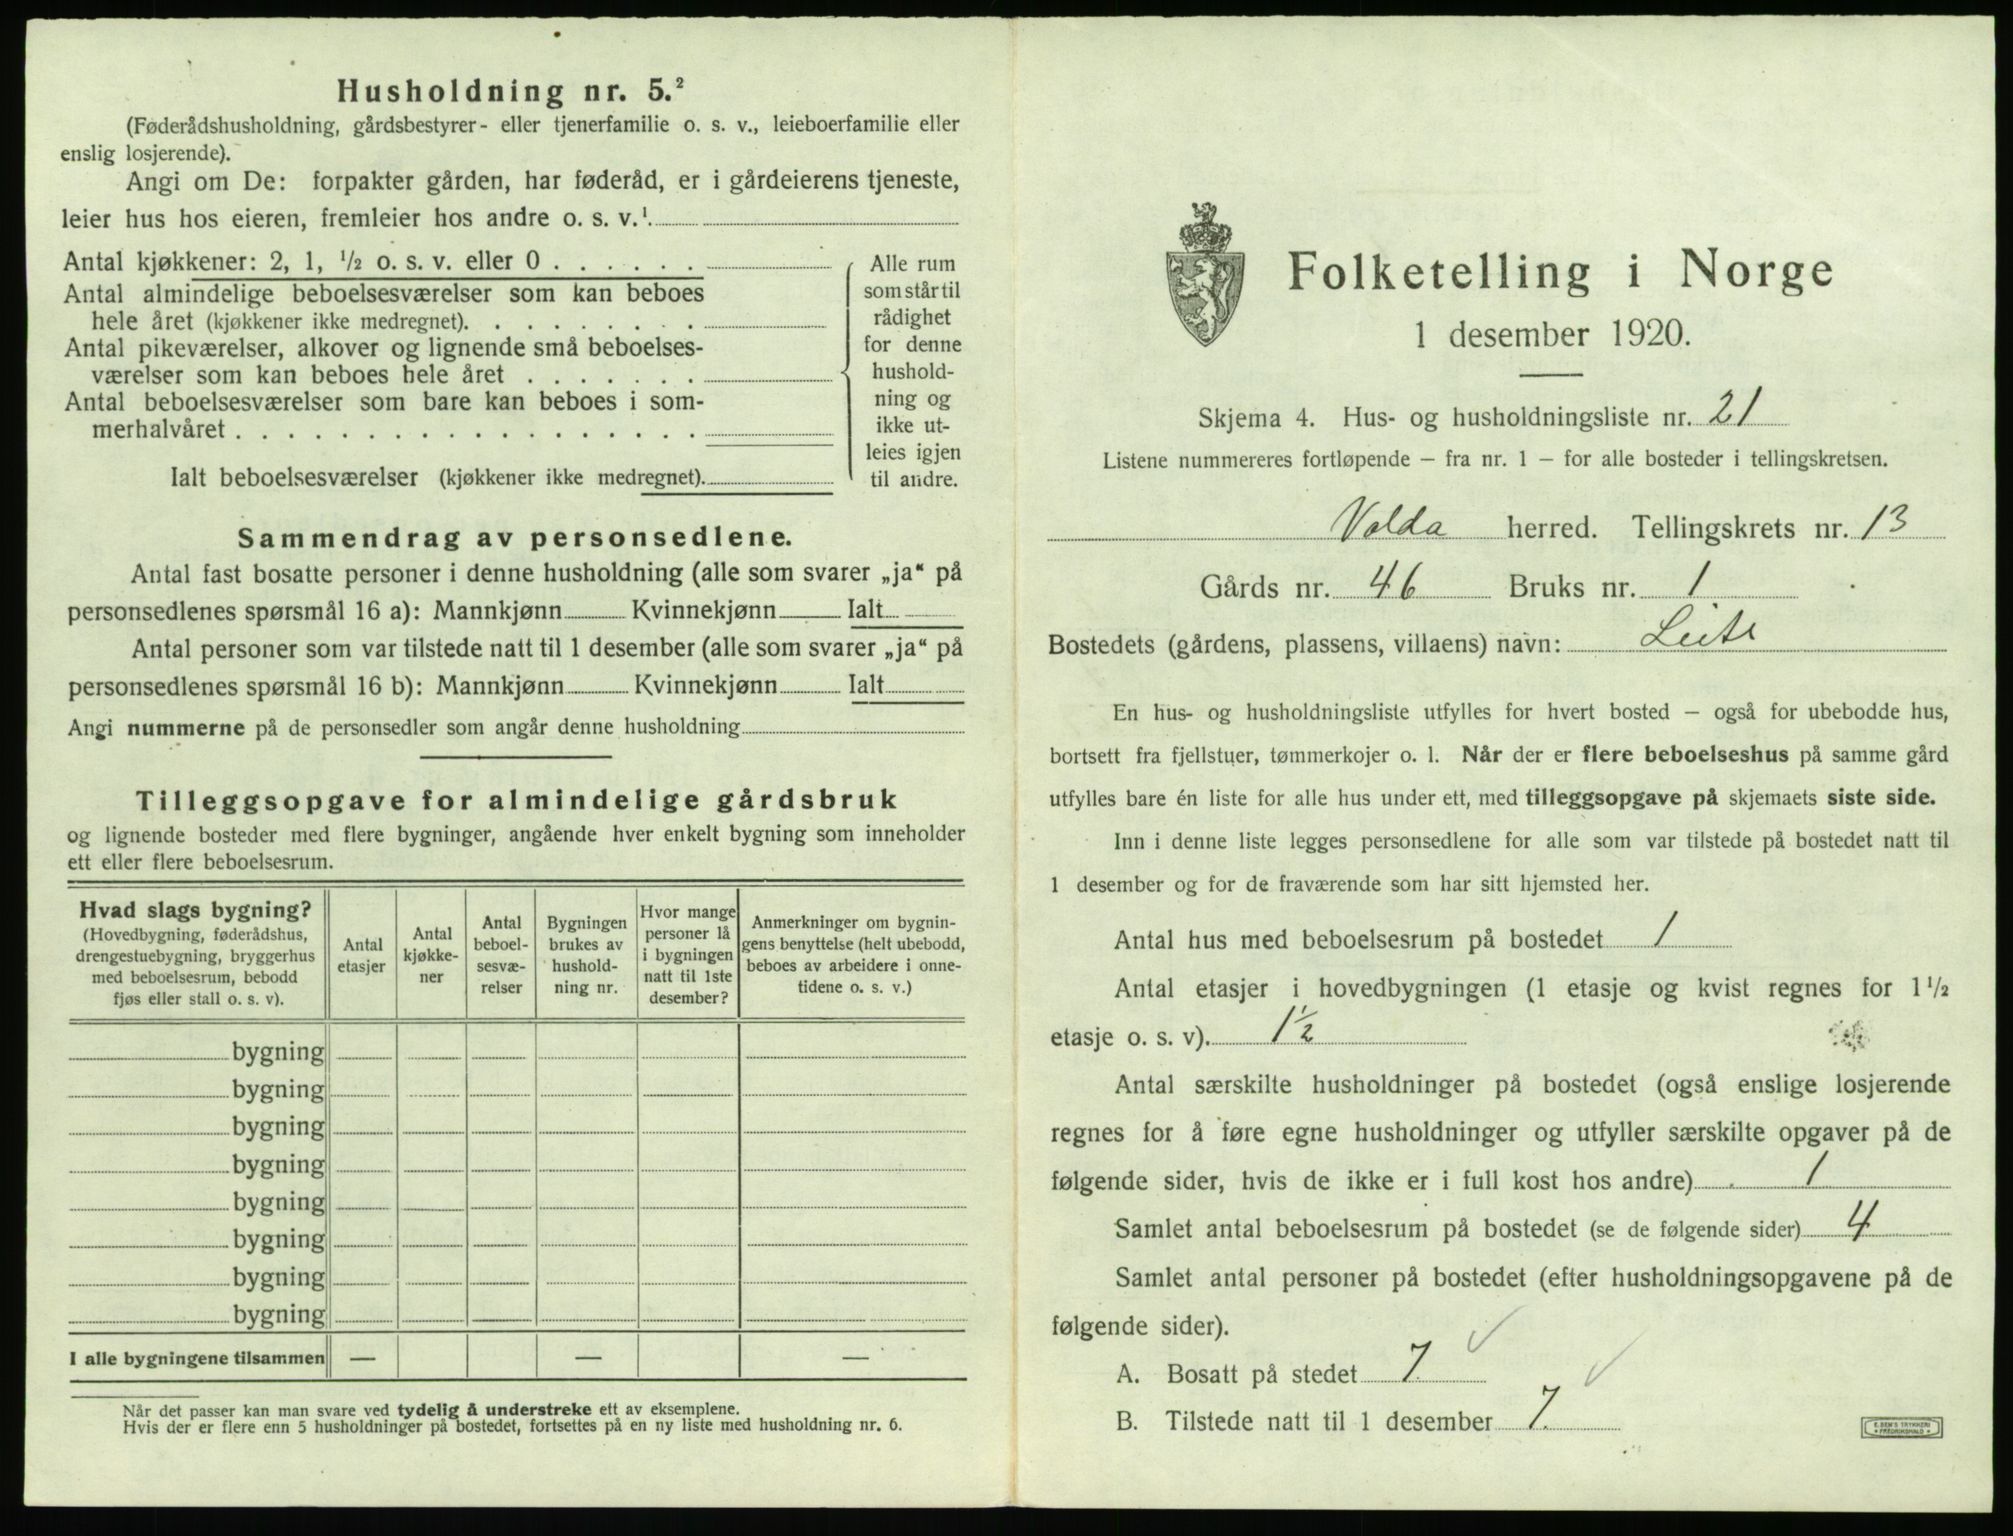 Husholdning nr. 5.²
(Føderådshusholdning, gårdsbestyrer- eller tjenerfamilie o. s. v., leieboerfamilie eller
enslig losjerende).
Angi om De: forpakter gården, har føderåd, er i gårdeierens tjeneste,
leier hus hos eieren, fremleier hos andre o. s. v.¹
Antal kjøkkener: 2, 1, ½ o. s. v. eller 0
Antal almindelige beboelsesværelser som kan beboes
hele året (kjøkkener ikke medregnet).
Antal pikeværelser, alkover og lignende små beboelses-
værelser som kan beboes hele året
Antal beboelsesværelser som bare kan beboes i som-
merhalvåret
Ialt beboelsesværelser (kjøkkener ikke medregnet).
Alle rum
som står til
rådighet
for denne
hushold-
ning og
ikke ut-
leies igjen
til andre.
Sammendrag av personsedlene.
Antal fast bosatte personer i denne husholdning (alle som svarer „ja“ på
personsedlenes spørsmål 16 a): Mannkjønn Kvinnekjønn Ialt
Antal personer som var tilstede natt til 1 desember (alle som svarer „ja“ på
personsedlenes spørsmål 16 b): Mannkjønn Kvinnekjønn Ialt
Angi nummerne på de personsedler som angår denne husholdning
Tilleggsopgave for almindelige gårdsbruk
og lignende bosteder med flere bygninger, angående hver enkelt bygning som inneholder
ett eller flere beboelsesrum.
Hvad slags bygning?
(Hovedbygning, føderådshus,
drengestuebygning, bryggerhus
med beboelsesrum, bebodd
fjøs eller stall o. s. v).
Antal
etasjer
Antal
kjøkke-
ner
Antal
beboel-
sesvæ-
relser
Bygningen
brukes av
hushold-
ning nr.
Hvor mange
personer lå
i bygningen
natt til 1ste
desember?
Anmerkninger om bygnin-
gens benyttelse (helt ubebodd,
beboes av arbeidere i onne-
tidene o. s. v.)
bygning
bygning
bygning
bygning
bygning
bygning
bygning
bygning
I alle bygningene tilsammen — — —
Når det passer kan man svare ved tydelig å understreke ett av eksemplene.
Hvis der er flere enn 5 husholdninger på bostedet, fortsettes på en ny liste med husholdning nr. 6.
Folketelling i Norge
1 desember 1920.
Skjema 4. Hus- og husholdningsliste nr. 21
Listene nummereres fortløpende — fra nr. 1 — for alle bosteder i tellingskretsen.
Volda herred. Tellingskrets nr. 13
Gårds nr. 46 Bruks nr. 1
Bostedets (gårdens, plassens, villaens) navn: Leite
En hus- og husholdningsliste utfylles for hvert bosted — også for ubebodde hus,
bortsett fra fjellstuer, tømmerkojer o. l. Når der er flere beboelseshus på samme gård
utfylles bare én liste for alle hus under ett, med tilleggsopgave på skjemaets siste side.
Inn i denne liste legges personsedlene for alle som var tilstede på bostedet natt til
1 desember og for de fraværende som har sitt hjemsted her.
Antal hus med beboelsesrum på bostedet 1
Antal etasjer i hovedbygningen (1 etasje og kvist regnes for 1½
etasje o. s. v). 1½
Antal særskilte husholdninger på bostedet (også enslige losjerende
regnes for å føre egne husholdninger og utfyller særskilte opgaver på de
følgende sider, hvis de ikke er i full kost hos andre) 1
Samlet antal beboelsesrum på bostedet (se de følgende sider) 4
Samlet antal personer på bostedet (efter husholdningsopgavene på de
følgende sider).
A. Bosatt på stedet 7 ✓
B. Tilstede natt til 1 desember 7. ✓